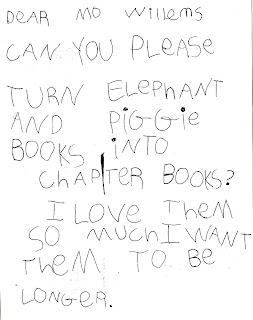 DEAR MO Willems
CAN YOU PLEASE
TURN ELEPHANT
AND PiGGiE
BOOKS iNTO
ChAPTER BOOKS?
I LOVE THEM
SO MUCh I WANT
THEM TO BE
LONGER.